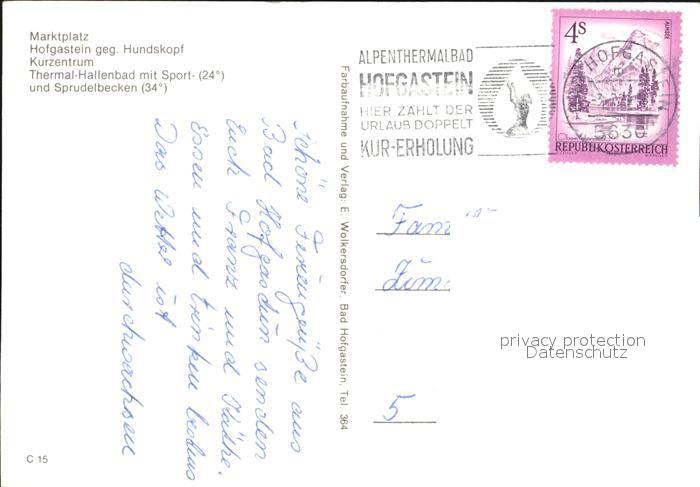 Marktplatz
Hofgastein geg. Hundskopf
Kurzentrum
Thermal-Hallenbad mit Sport- (24°)
und Sprudelbecken (34°)
Schöne Feriengrüße aus
Bad Hofgastein senden
Euch Franz und Käthe.
Essen und trinken
Das Wetter ist
durchwachsen
C 15
Farbaufnahme und Verlag: E. Wolkersdorfer, Bad Hofgastein, Tel. 364
ALPENTHERMALBAD
HOFGASTEIN
HIER ZÄHLT DER
URLAUB DOPPELT
KUR-ERHOLUNG
4S
ALMSEE
HOFGASTEIN
5630
REPUBLIK ÖSTERREICH
Fam
5
privacy protection
Datenschutz